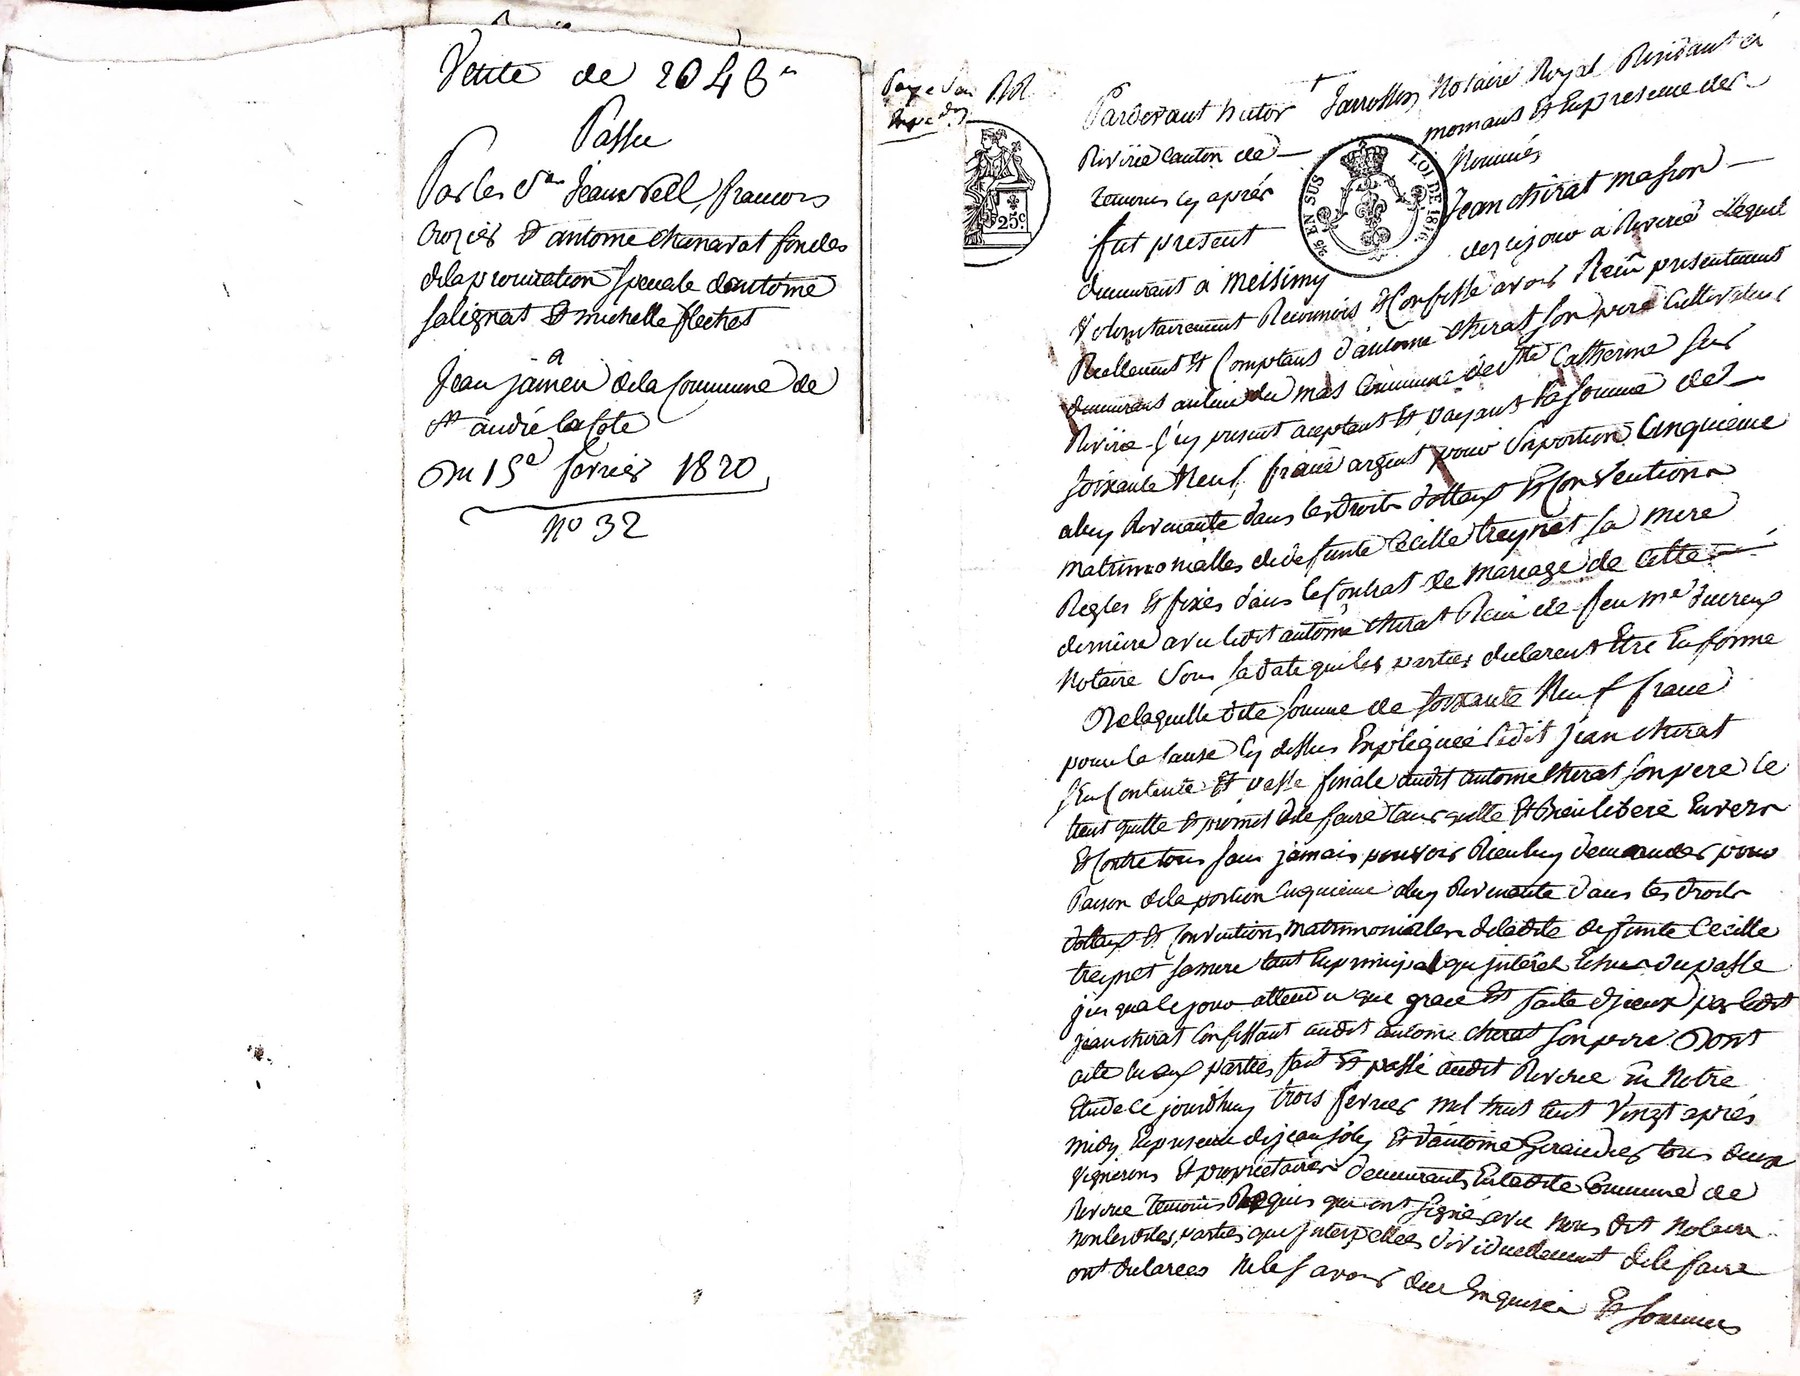 Vente de 2048
Passee
Par les Srs Jean Vell, francois
Crozier & antoine chanavat fondes
de la procuration Speciale d'antoine
Salignat & michelle flechet
a
Jean jamen de la Commune de
St andré la Cote
Du 15e fevrier 1820
No 32
25c.
25 EN SUS
LOI DE 1816.
Pardevant victor Notaire Royal Residant a
Riverie Canton de mornant Et En presence des
temoins cy aprés Nommés
fut present Jean chirat masson
demeurant a Meisimy de ce jour a Riverie Lequel
Volontairement Reconnois & Confesse avoir Recu presentement
Reellement Et Comptant d'antoine chirat son pere Cultivateur
demeurant au lieu du mas Commune de Ste Catherine sur
Riverie Cy present aceptant Et payant la somme de
soixante Neuf franc argent pour sa portion Cinquieme
a luy Revenante dans les droits dottaux Et Conventions
matrimonialles de defunte Cécille treynet sa mere
Regles Et fixés dans le Contrat de mariage de Cette
derniere avec ledit antoine chirat Recu de feu me ducreux
Notaire sous sa date que les parties declarent Etre En forme
De laquelle dite somme de soixante Neuf franc
pour la Cause Cy dessus Expliquée ledit jean chirat
s'En Contente Et passe finale audit antoine chirat son pere le
tient quitte & promet de le faire tenir quitte Et Bien liberé Envers
Et Contre tous sans jamais pouvoir Rien luy demander pour
Raison de la portion Cinquieme a luy Revenante dans les droits
dottaux Et Conventions matrimoniales de ladite defunte Cecille
treynet sa mere tant En principal que jnterêt Echus du passé
jus qua ce jour attendu que grace Est faite d'jceux par ledit
jean chirat Confessant audit antoine chirat son pere Dont
acte lu aux parties fait Et passé audit Riverie En Notre
Etude Ce jourdhuy trois fevrier mil huit Cent Vingt aprés
midy En presence de jean joly Et d'antoine Geraudier tous deux
vignerons Et proprietaires demeurants En ladite Commune de
Riverie temoins Requis qui ont signé avec Nous dit Notaire
non lesdites parties que jnterpellées dividuellement de le faire
ont declarées Ne le savoir de ce Enquises Et sommées